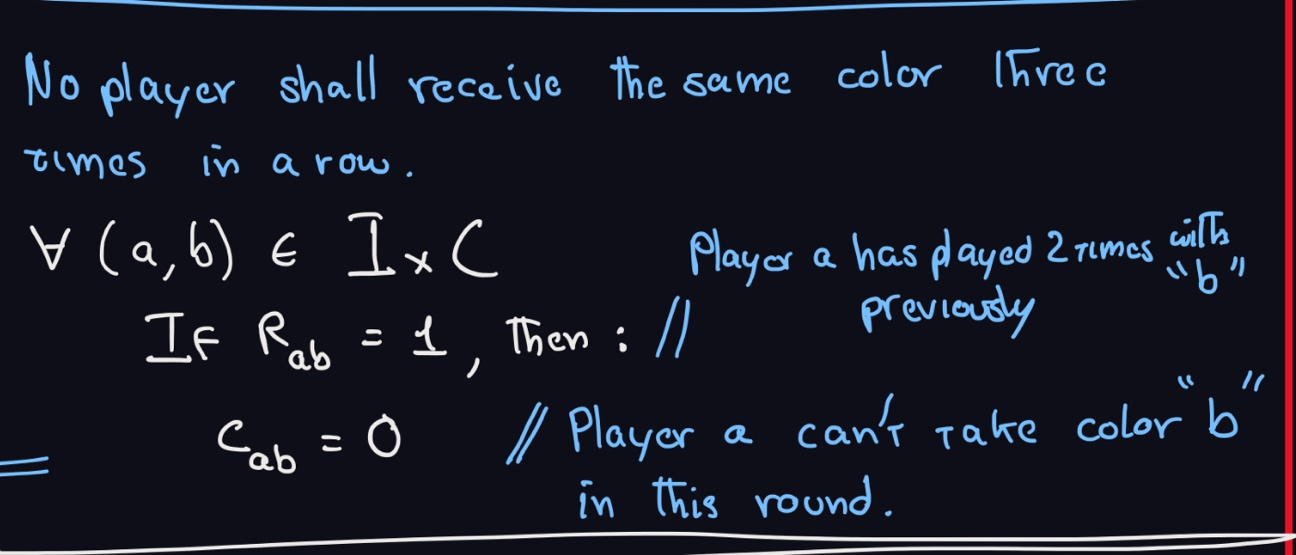 No player shall receive the same color three
times in a row.
∀ (a,b) ∈ I x C
Player a has played 2 times with "b"
previously
If R_ab = 1, then : //
C_ab = 0 // Player a can't take color "b"
in this round.